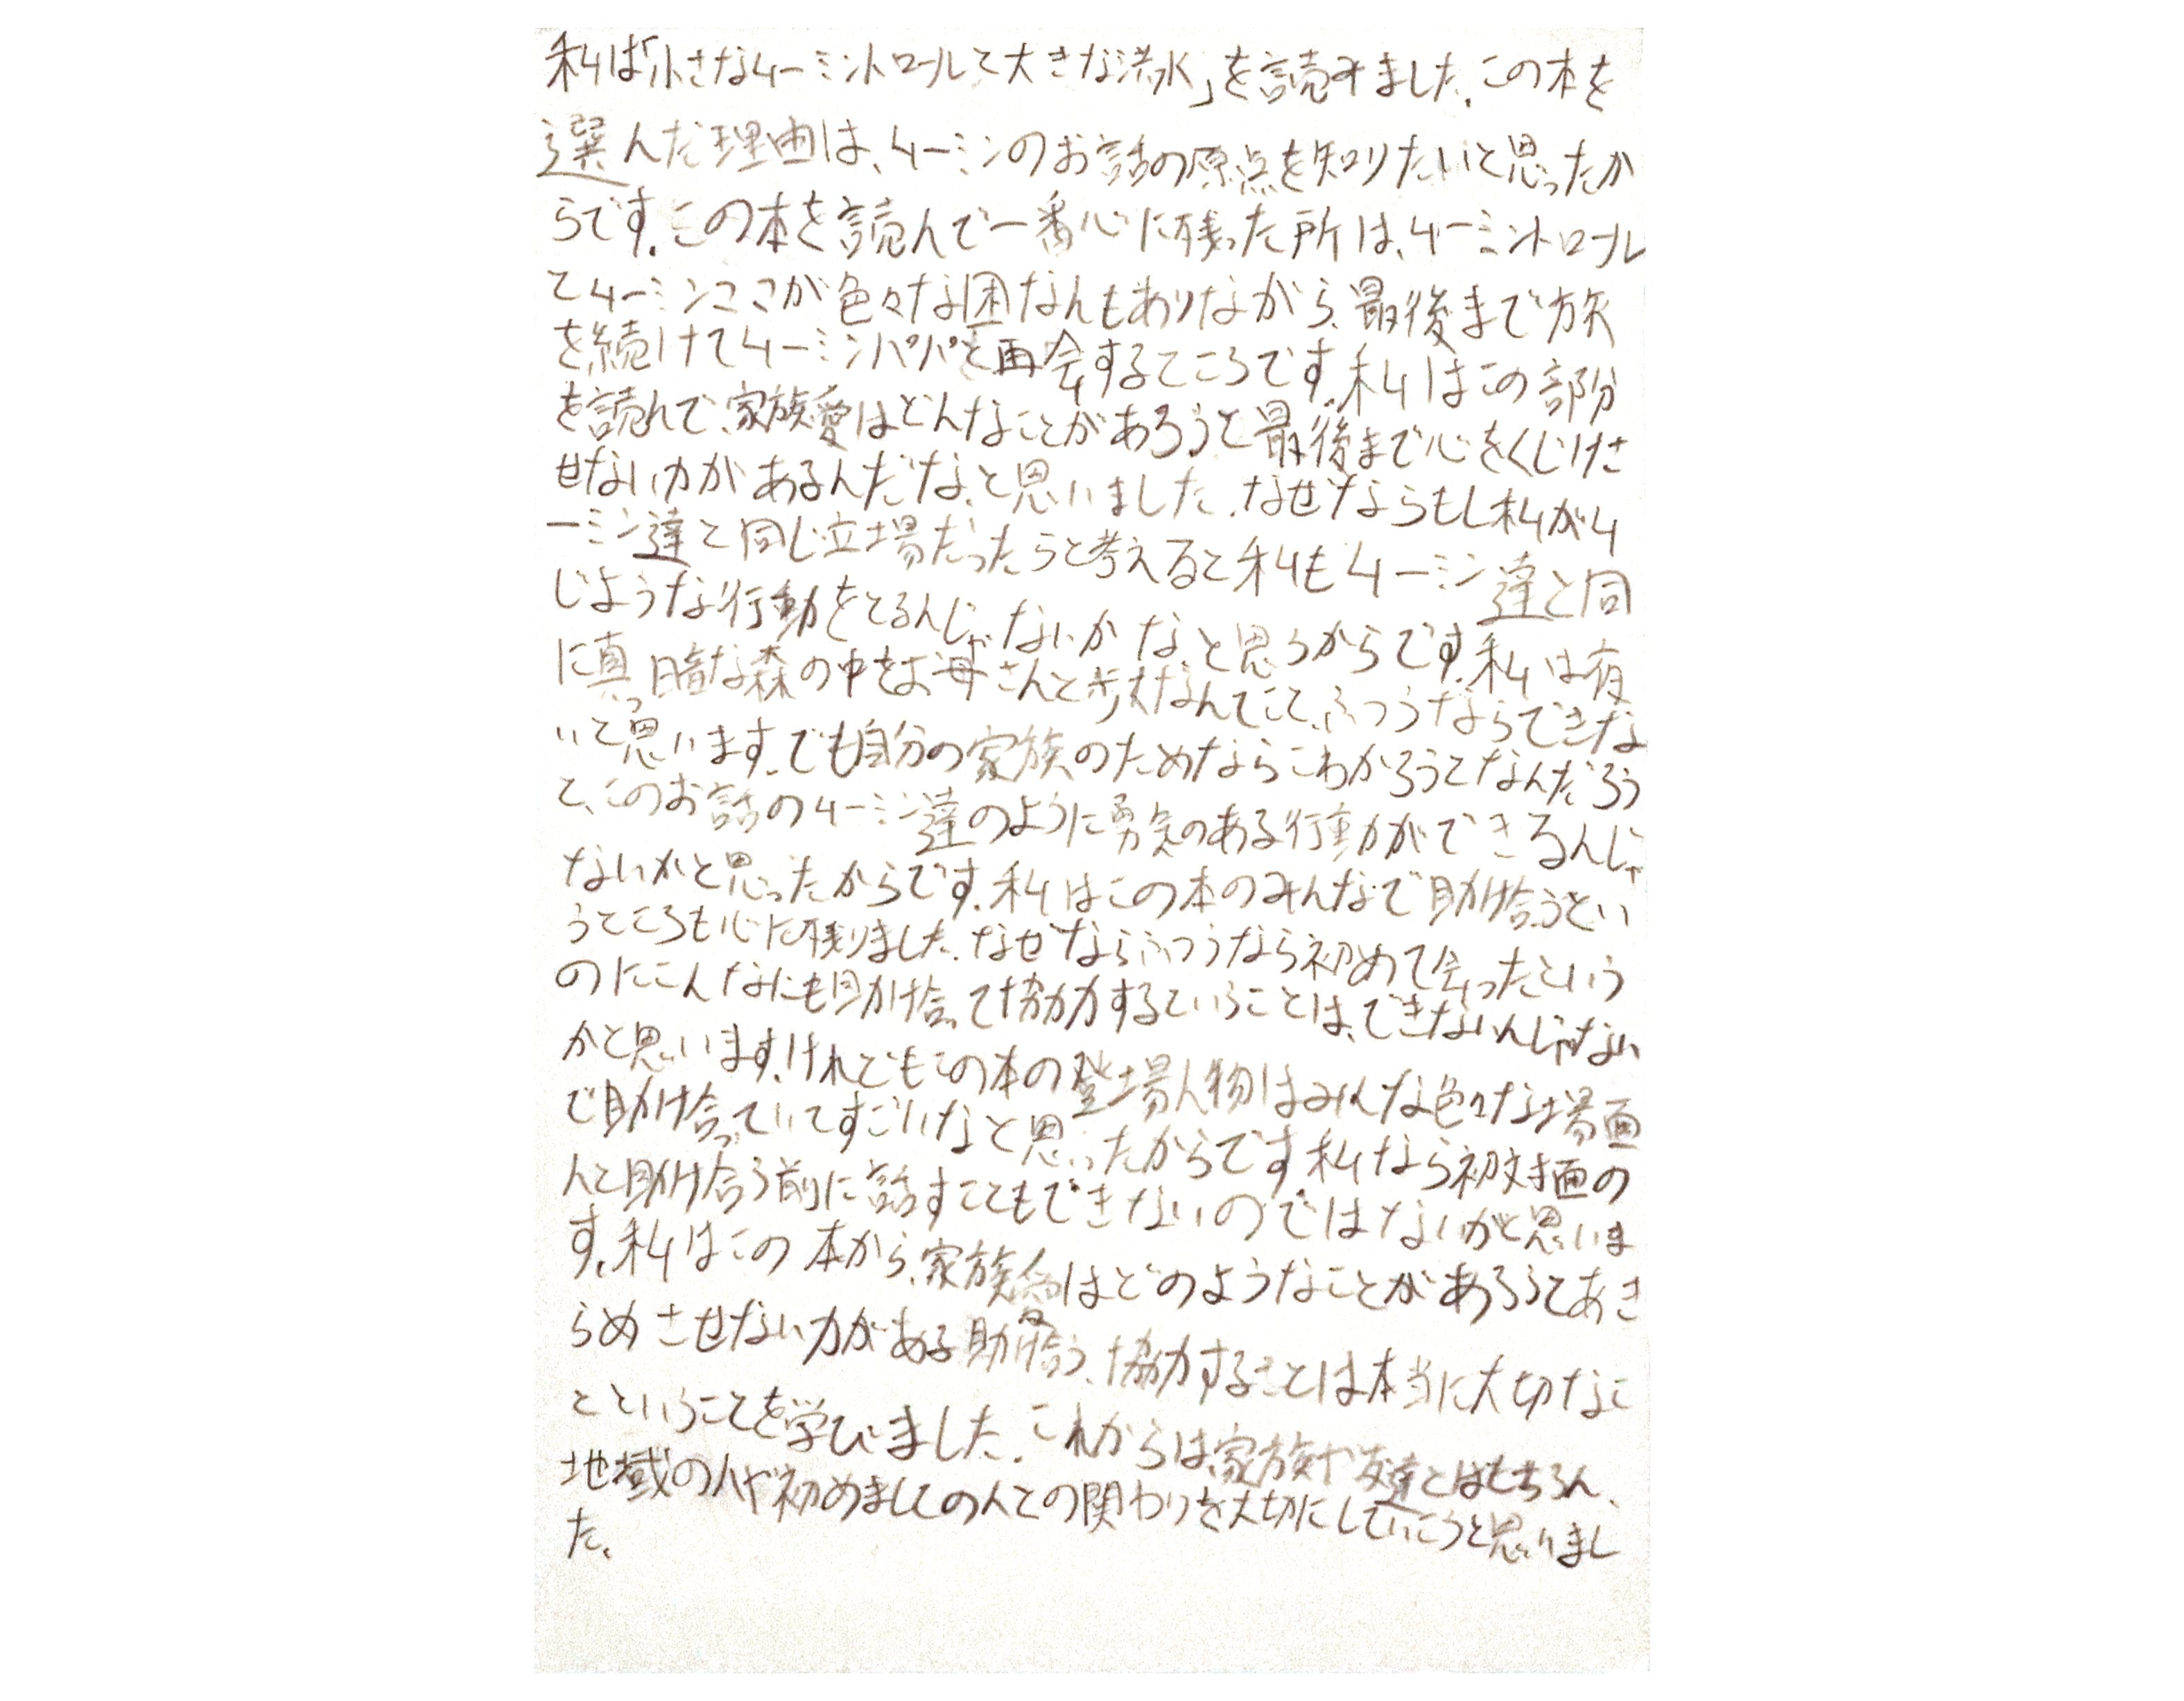 私は「小さなムーミントロールと大きな洪水」を読みました。この本を
選んだ理由は、ムーミンのお話の原点を知りたいと思ったか
らです。この本を読んで一番心に残った所は、ムーミントロール
とムーミンママが色々な困なんもありながら、最後まで旅
を続けてムーミンパパと再会するところです。私はこの部分
を読んで、家族愛はどんなことがあろうと最後まで心をくじけさ
せない力があるんだな、と思いました。なぜならもし私がム
ーミン達と同じ立場だったらと考えると私もムーミン達と同
じような行動をとるんじゃないかな、と思うからです。私は夜
に真っ暗な森の中をお母さんと歩くなんてこと、ふつうならできな
いと思います。でも自分の家族のためならこわかろうとなんだろう
と、このお話のムーミン達のように勇気のある行動ができるんじゃ
ないかと思ったからです。私はこの本のみんなで助け合うとい
うところも心に残りました。なぜならふつうなら初めて会ったという
のにこんなにも助け合って協力するということは、できないんじゃない
かと思います。けれどもこの本の登場人物はみんな色々な場面
で助け合っていてすごいなと思ったからです。私なら初対面の
人と助け合う前に話すこともできないのではないかと思いま
す。私はこの本から、家族愛はどのようなことがあろうとあき
らめさせない力がある助け合う、協力することは本当に大切なこ
とということを学びました。これからは、家族や友達とはもちろん、
地域の人や初めましての人との関わりを大切にしていこうと思いまし
た。